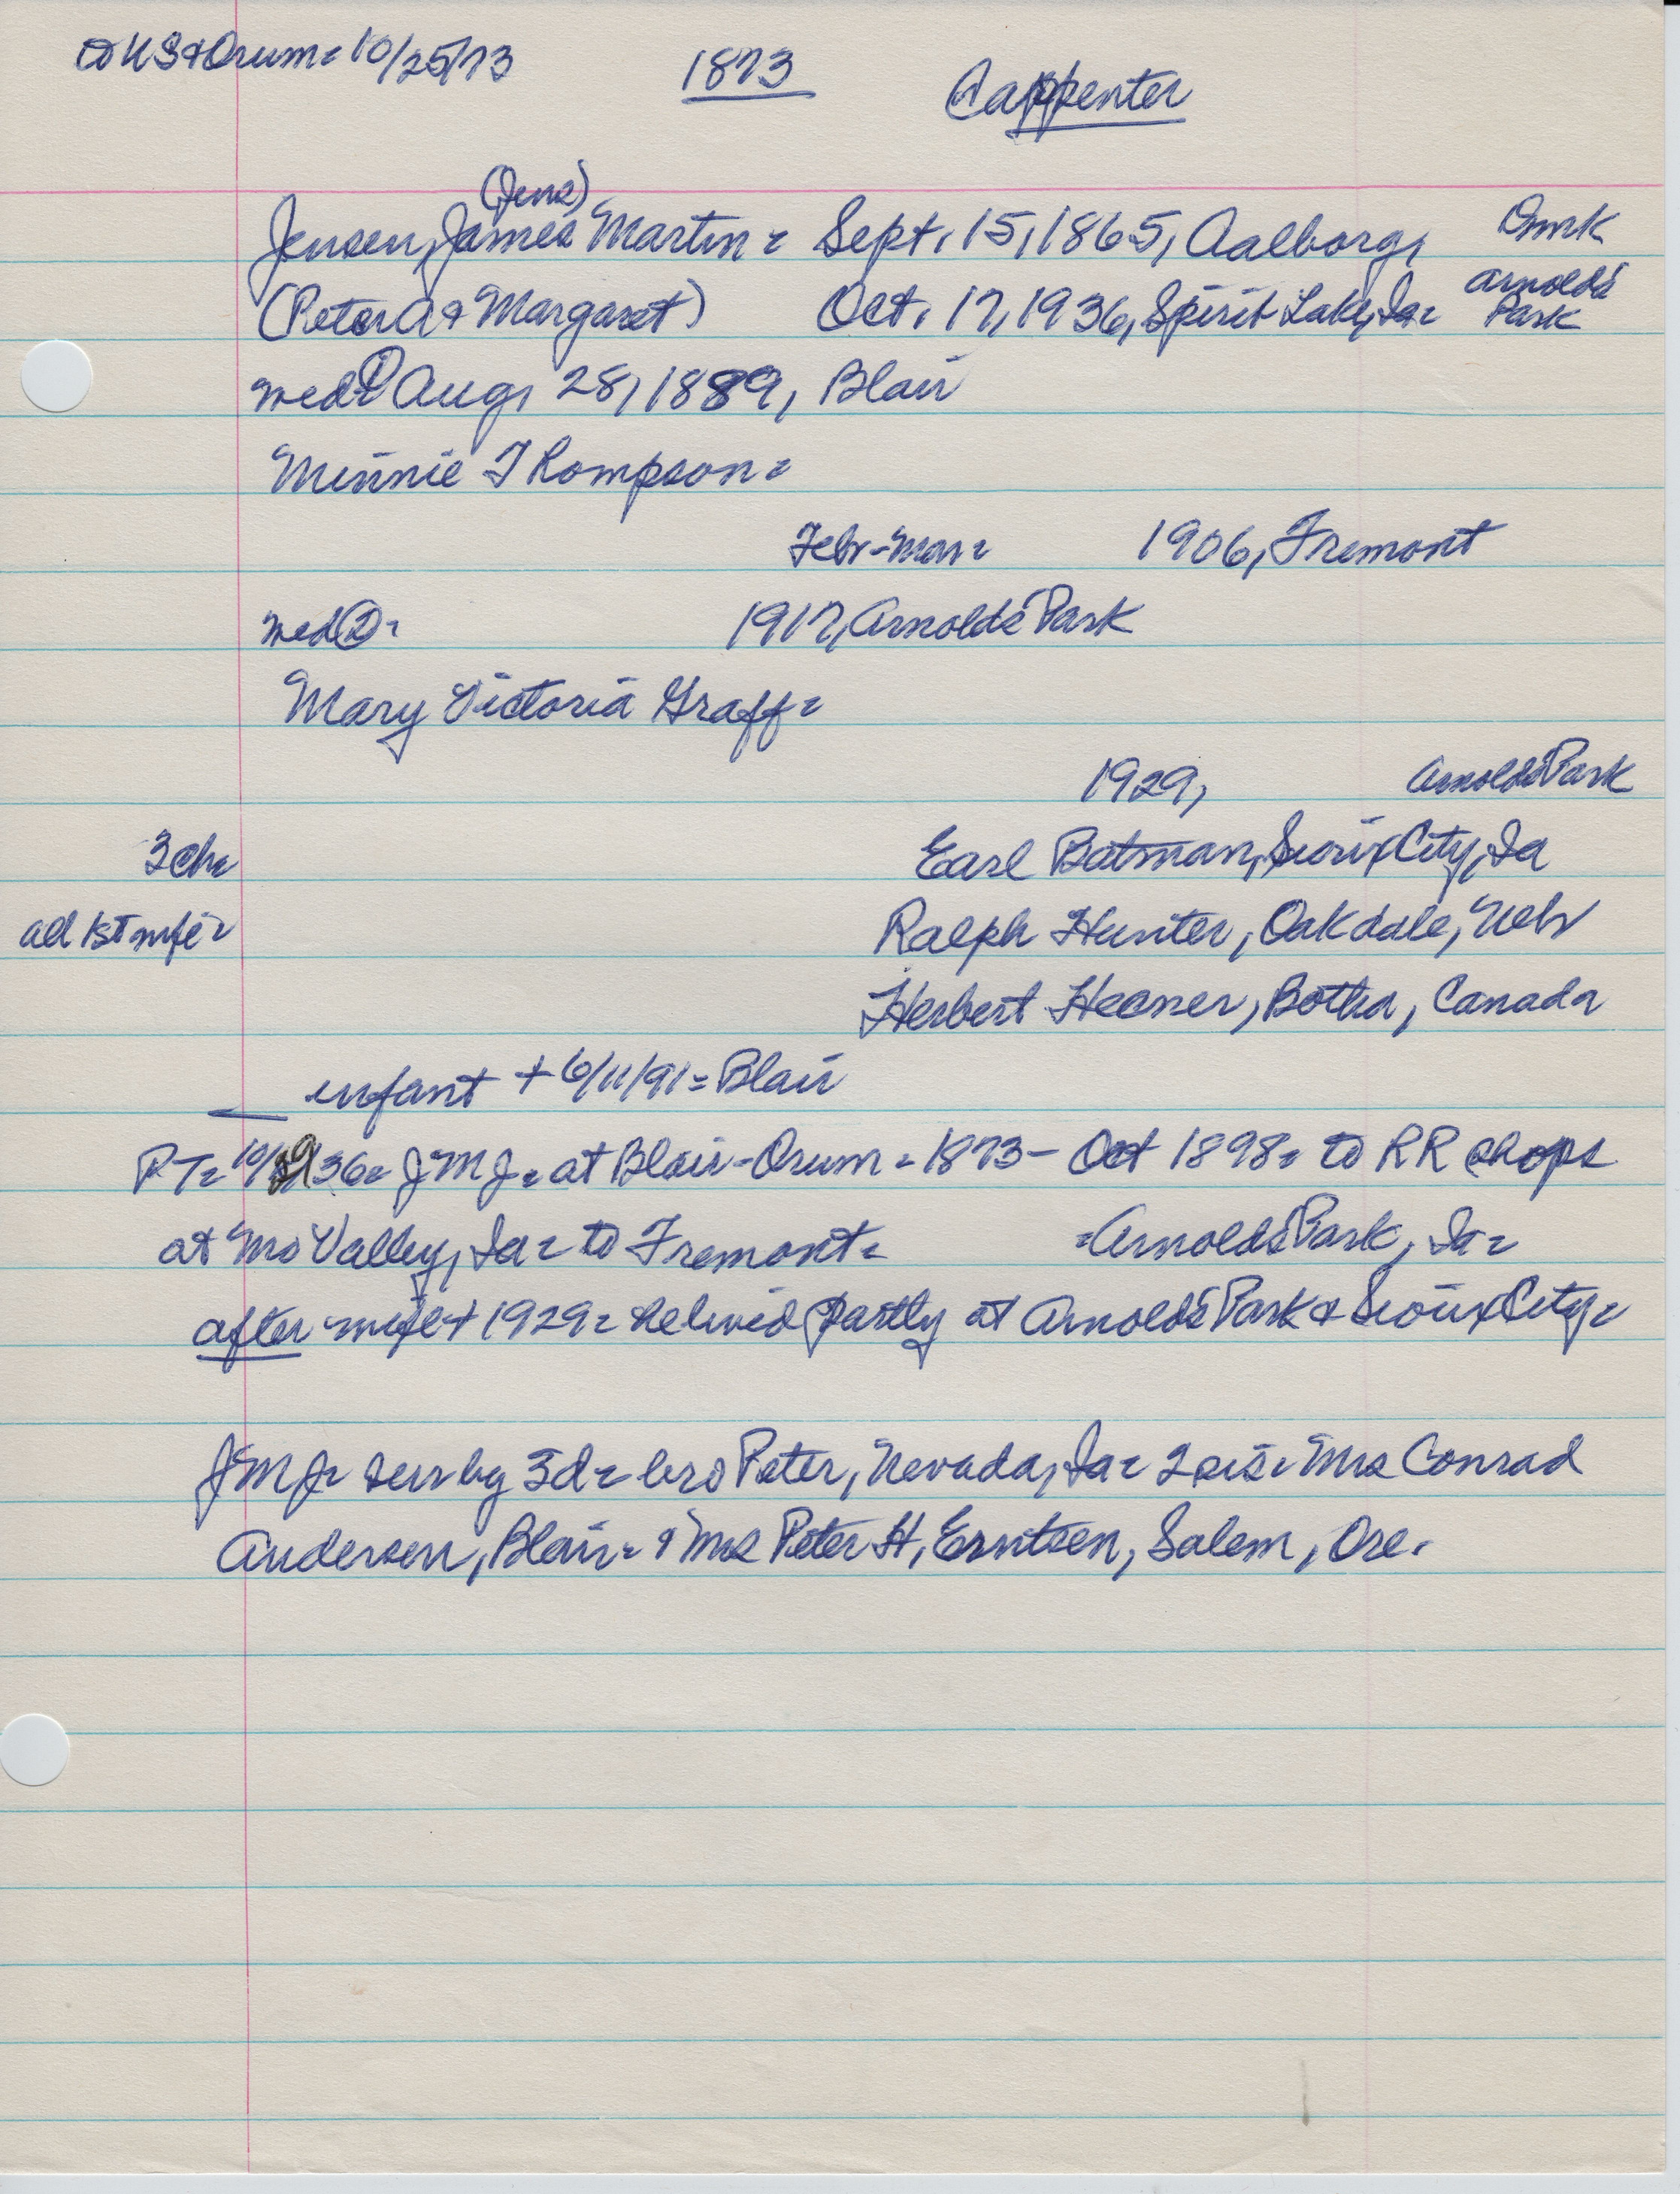 to US & Orum = 10/25/73
1873
Carpenter
(Jens)
Jensen, James Martin = Sept. 15, 1865, Aalborg, Dmrk
(Peter A & Margaret) Oct. 17, 1936, Spirit Lake, Ia = Arnolds Park
wed ① Aug, 28, 1889, Blair
Minnie Thompson =
Febr-Mar = 1906, Fremont
wed ② = 1917, Arnolds Park
Mary Victoria Graff =
1929, Arnolds Park
3 ch = Earl Batman, Sioux City, Ia
all 1st wife = Ralph Hunter, Oakdale, Nebr
Herbert Heaner, Botha, Canada
infant + 6/11/91 = Blair
PT = 10/29/36 = JMJ = at Blair-Orum = 1873 - Oct 1898 = to RR shops
at Mo Valley, Ia = to Fremont = = Arnolds Park, Ia =
after wife + 1929 = he lived partly at Arnolds Park & Sioux City =
JMJ = sur by 3d = bro Peter, Nevada, Ia = 2 sis = Mrs Conrad
Andersen, Blair = & Mrs Peter H, Erntsen, Salem, Ore.